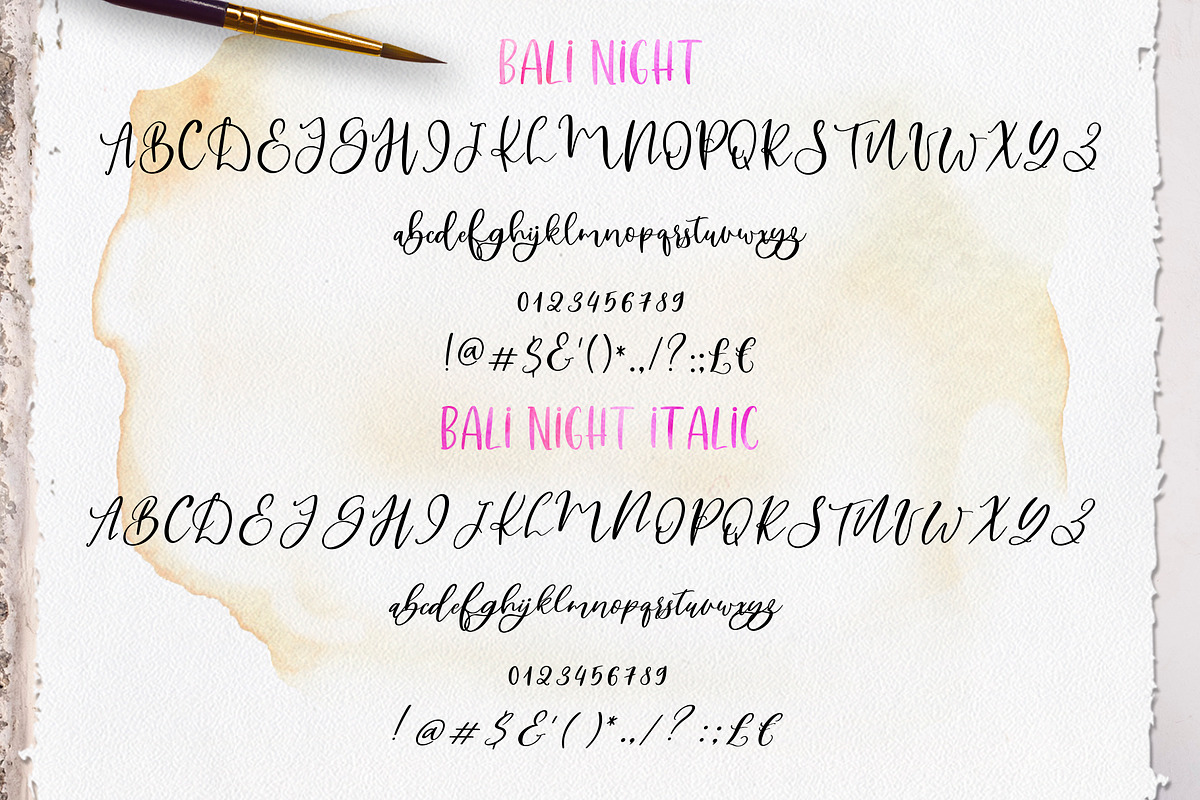 BALI NIGHT
ABCDEFGHIJKLMNOPQRSTUVWXYZ
abcdefghijklmnopqrstuvwxyz
0123456789
!@#$&'()*.,/?:;£€
BALI NIGHT ITALIC
ABCDEFGHIJKLMNOPQRSTUVWXYZ
abcdefghijklmnopqrstuvwxyz
0123456789
!@#$&'()*.,/?:;£€